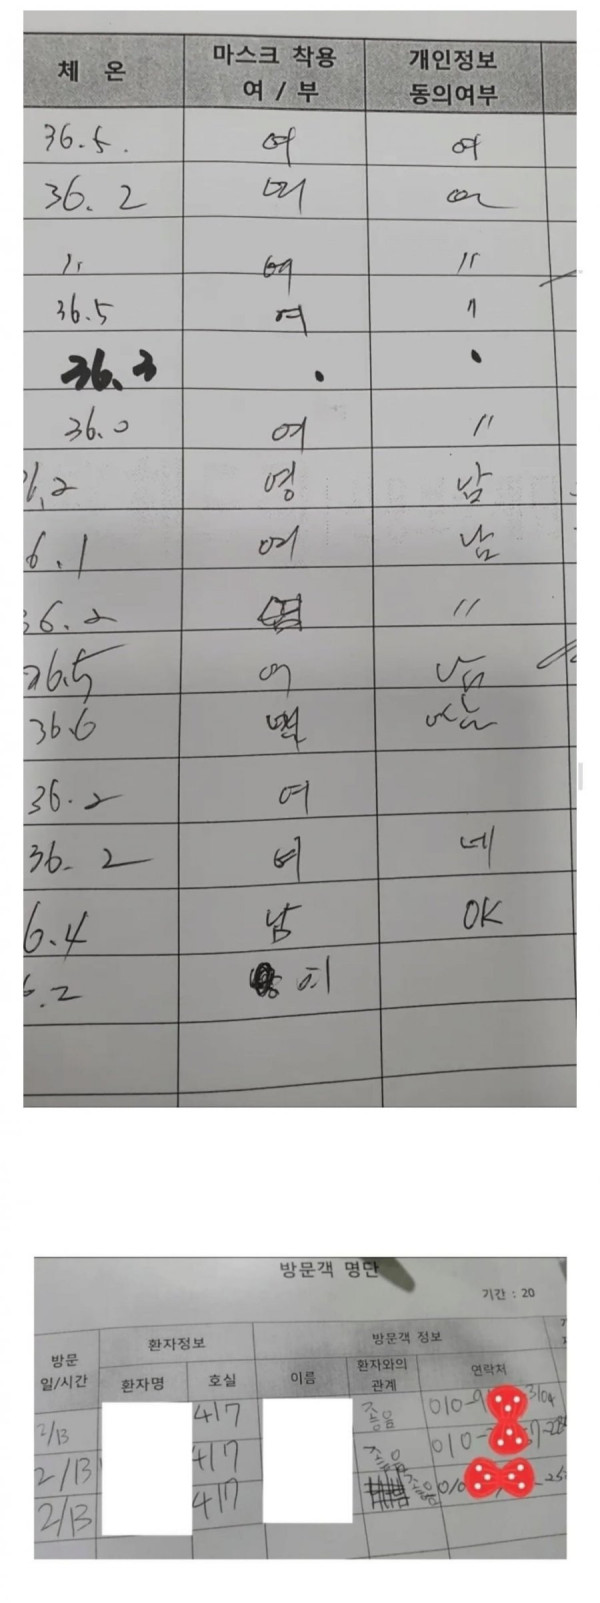 체 온 마스크 착용 여 / 부 개인정보 동의여부
36.5. 여 여
36.2 여 여
〃 여 〃
36.5 여 〃
36.3 . .
36.0 여 〃
6.2 영 남
6.1 여 남
36.2 〃
36.5 여 남
36.6 남
36.2 여
36.2 여 네
6.4 남 OK
6.2 여
방문객 명단
기간 : 20
방문 일/시간 환자정보 방문객 정보
환자명 호실 이름 환자와의 관계 연락처
2/13 417 좋음 010-9 3104
2/13 417 010-
2/13 417 010